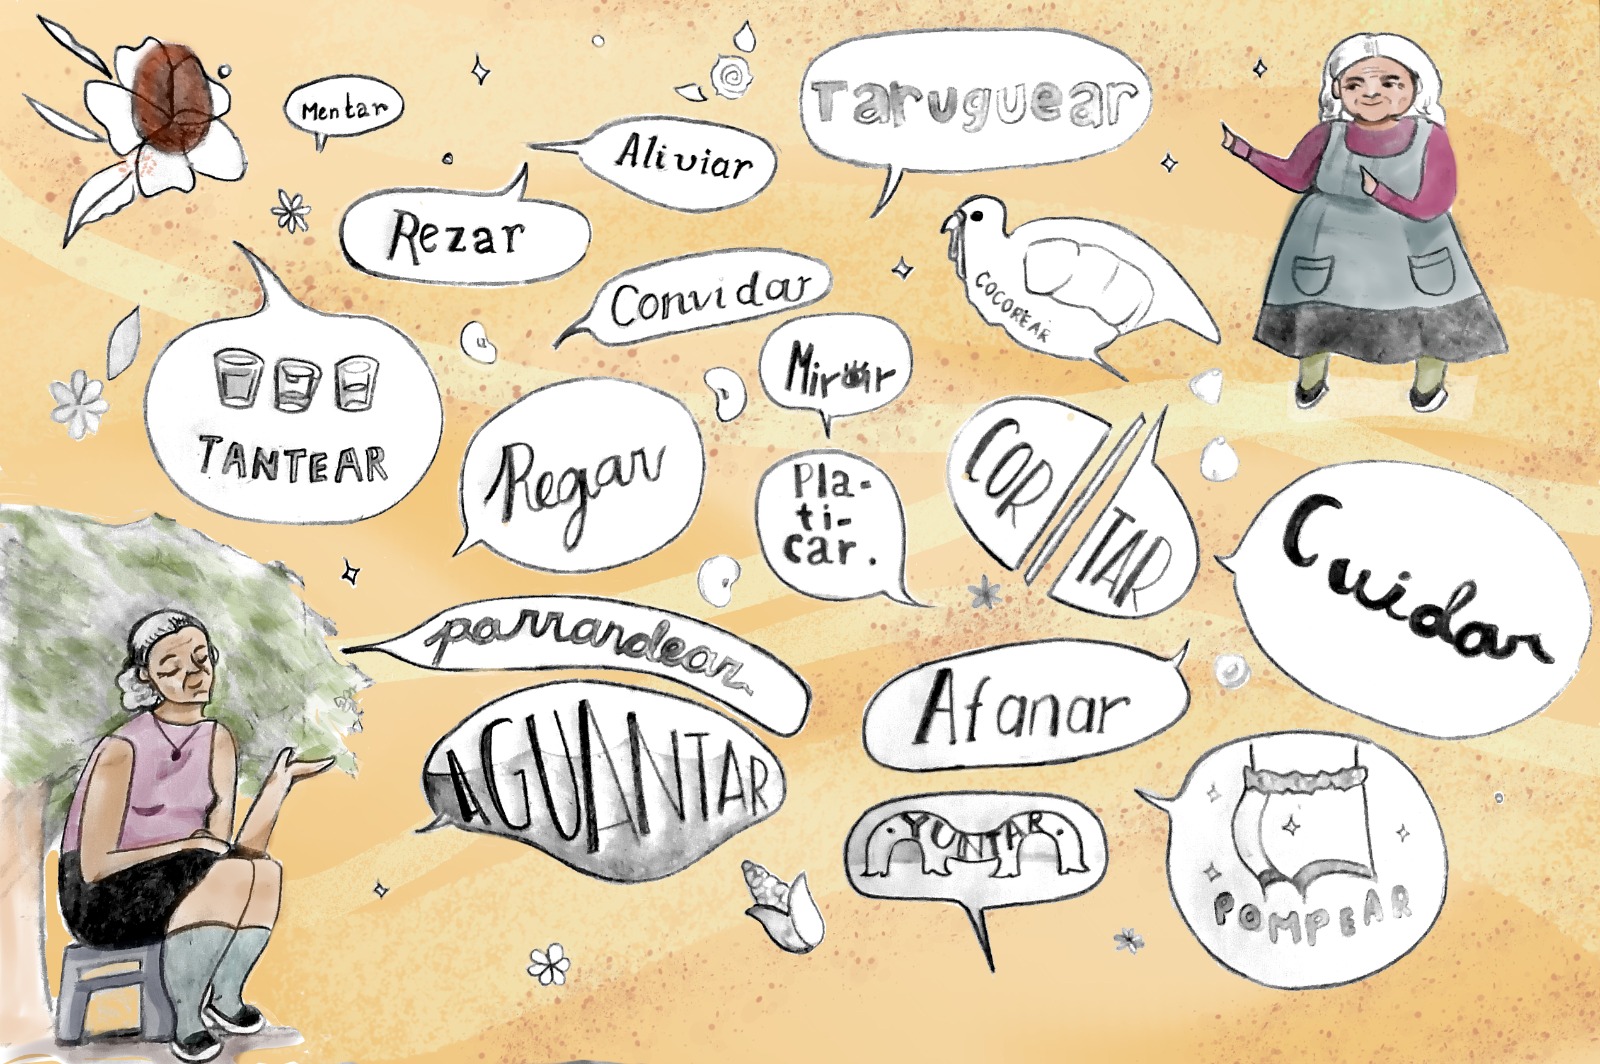 Mentar
Aliviar
Taruguear
Rezar
Convidar
COCOREAR
Mirar
TANTEAR
Regar
Pla-
ti-
car.
COR
TAR
Cuidar
parrandear
AGUANTAR
Afanar
YUNTAR
POMPEAR